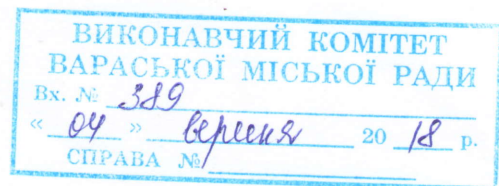 ВИКОНАВЧИЙ КОМІТЕТ
ВАРАСЬКОЇ МІСЬКОЇ РАДИ
Вх. № 389
« 04 » вересня 20 18 р.
СПРАВА №